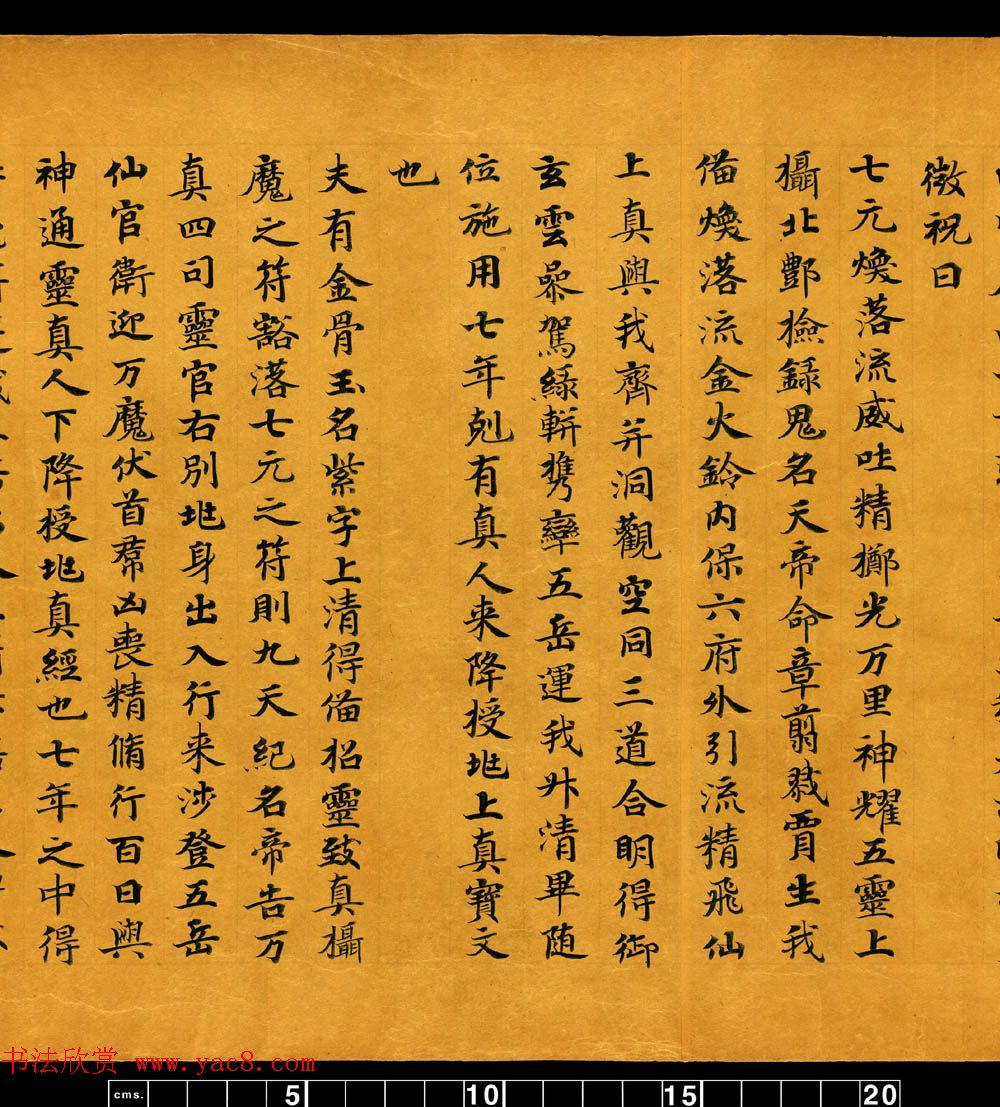 微祝曰
七元煥落流威吐精擲光万里神耀五靈上
攝北酆撿録鬼名天帝命章翦戮賈生我
俻煥落流金火鈴内保六府外引流精飛仙
上真與我齊并洞觀空同三道合明得御
玄雲駕緑軿携轡五岳運我升清畢随
位施用七年剋有真人来降授地上真寳文
也
夫有金骨玉名紫字上清得俻招靈致真攝
魔之符豁落七元之符則九天紀名帝告万
真四司靈官右别地身出入行来涉登五岳
仙官衛迎万魔伏首羣凶喪精脩行百日與
神通靈真人下降授地真經也七年之中得
书法欣赏 www.yac8.com
cms. 5 10 15 20